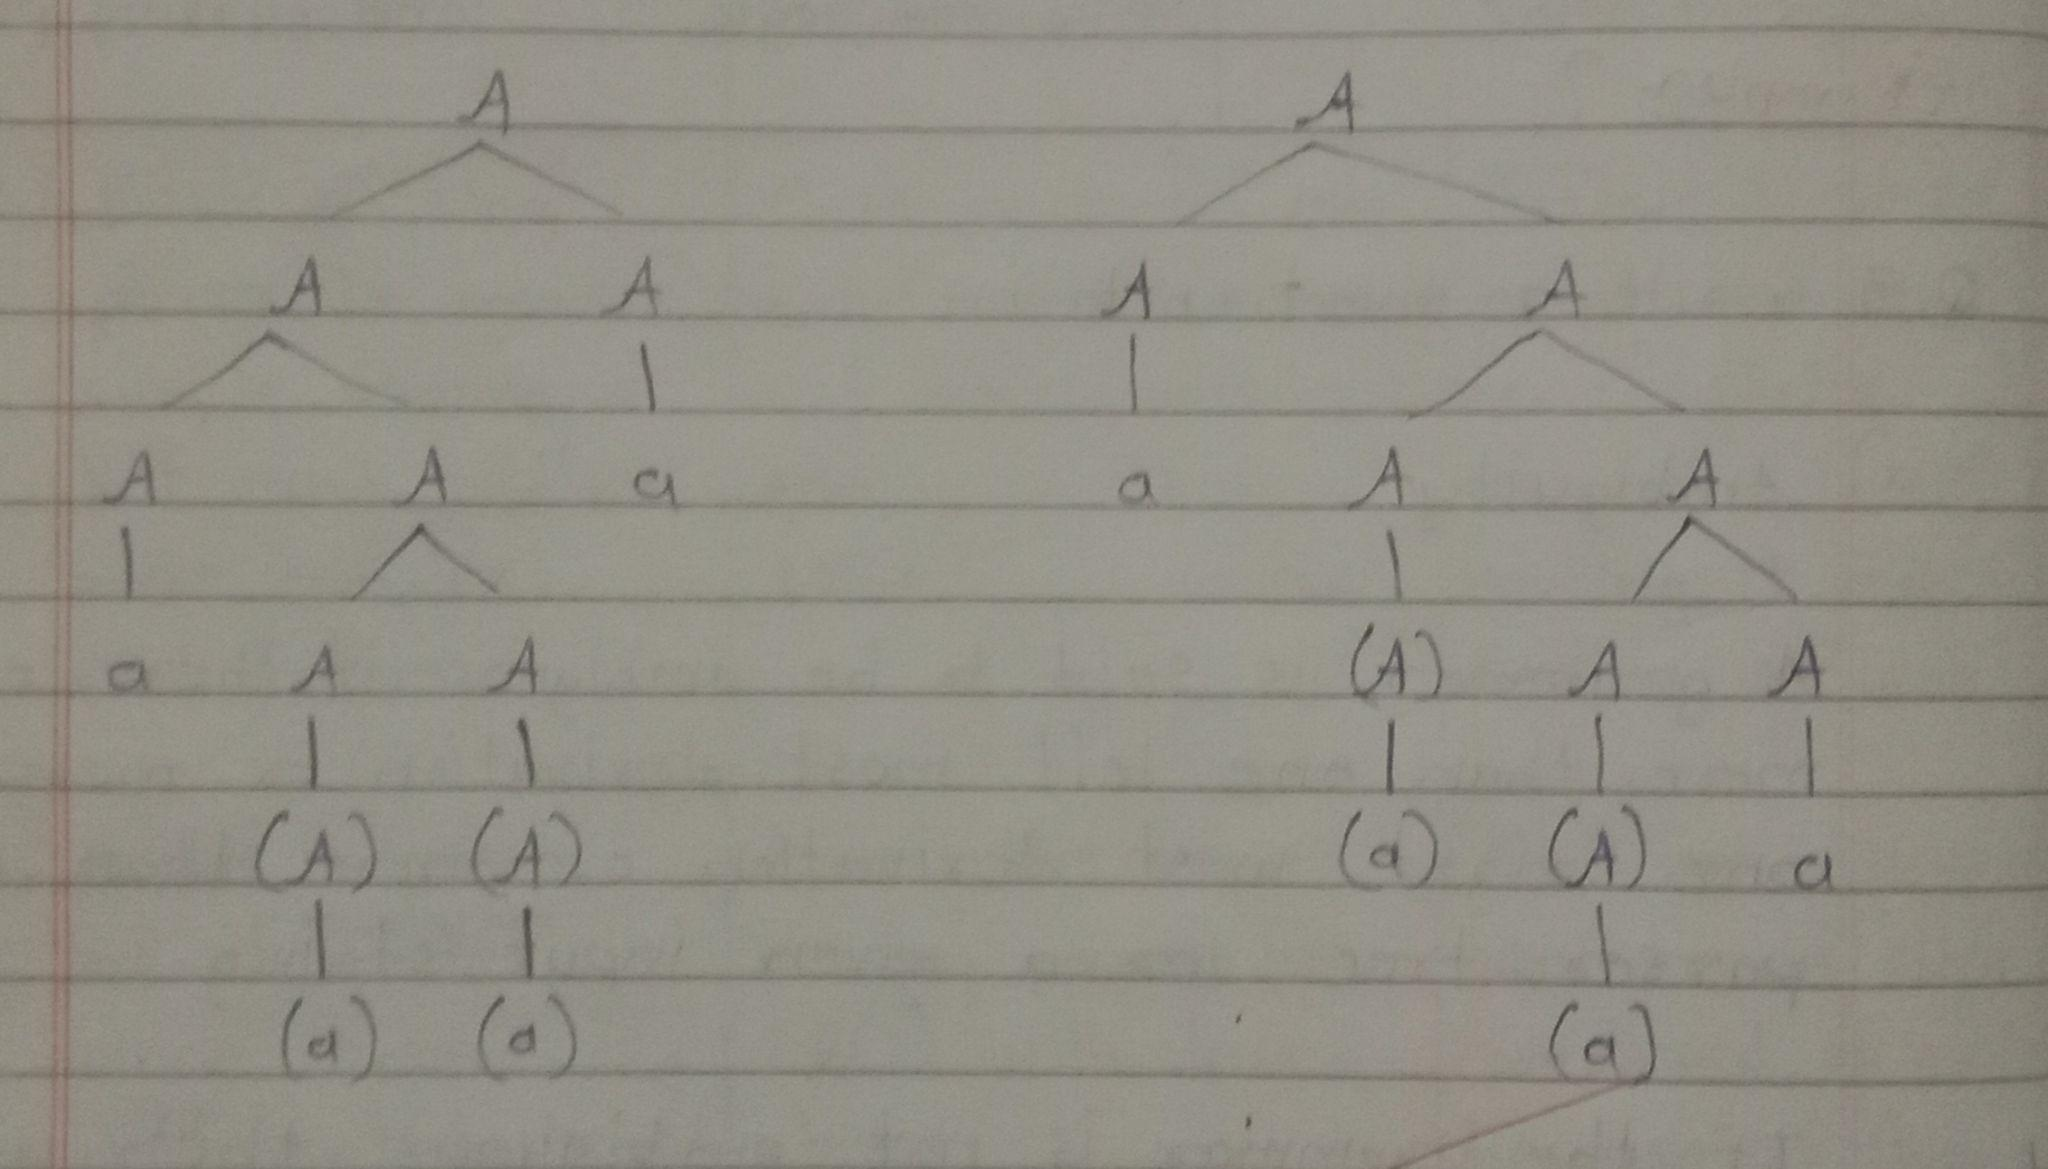 A A
A A A A
A A a a A A
a A A (A) A A
(A) (A) (a) (A) a
(a) (a) (a)